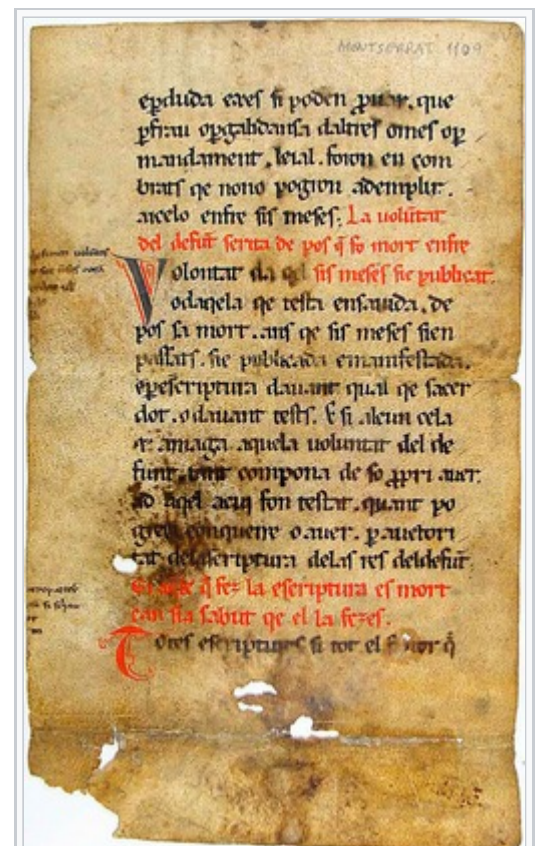 MONTSERRAT 1109
eꝑduda eres si poden ꝓuar. que
ꝑfrau oꝑgalidansa daltres omes oꝑ
mandament. leial. foron en com
brats qe nono pogron ademplir.
aicelo enfre sis meses. La uolũtat
del defũt scrita de pos q̃ so mort enfre
Volontat da qel sis meses sie publicat.
odaqela qe testa ensauida. de
pos sa mort. ans qe sis meses sien
passats. sie publicada emanifestada.
eꝑescriptura dauant qual qe sacer
dot. odauant tests. E si alcun cela
amaga aquela uoluntat del de
funt. tant compona de so ꝓpri auer.
ad aqel acui fon testat. quant po
conquerre oauer. ꝑ auctori
tat del scriptura delas res deldefũt.
q̃ fez la escriptura es mort
can sia sabut qe el la fezes.
Totes escriptures si tot el q̃